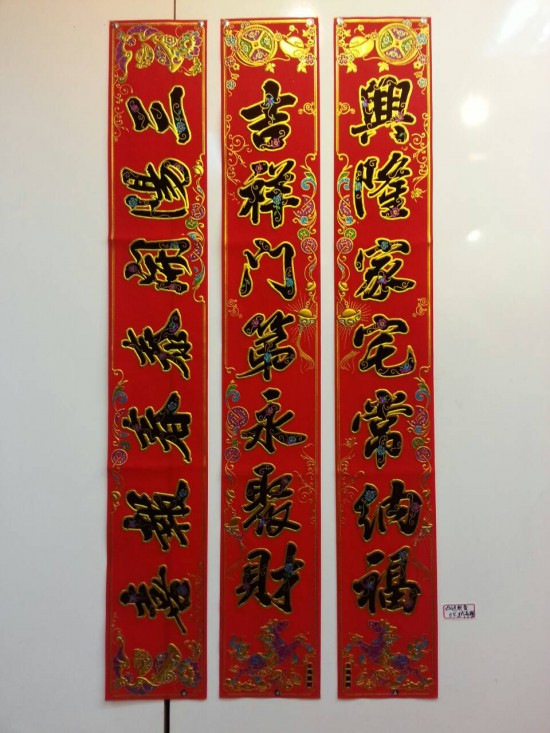 興隆家宅常納福
吉祥门第永聚財
三陽開泰春報喜